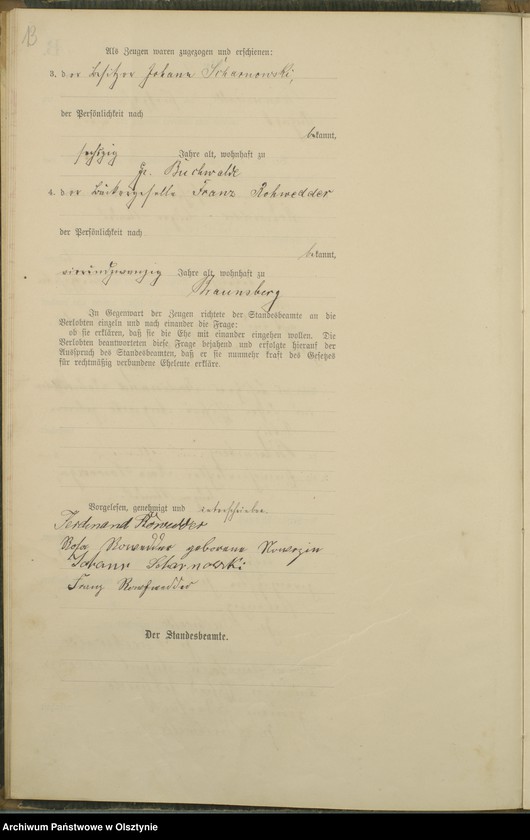 B
Als Zeugen waren zugezogen und erschienen:
3. der Besitzer Johann Scharnowski,
der Persönlichkeit nach
bekannt,
sechszig Jahre alt, wohnhaft zu
Gr. Buchwalde
4. der Bäckergeselle Franz Rohwedder
der Persönlichkeit nach
bekannt,
vierundzwanzig Jahre alt, wohnhaft zu
Braunsberg
In Gegenwart der Zeugen richtete der Standesbeamte an die
Verlobten einzeln und nach einander die Frage:
ob sie erklären, daß sie die Ehe mit einander eingehen wollen. Die
Verlobten beantworteten diese Frage bejahend und erfolgte hierauf der
Ausspruch des Standesbeamten, daß er sie nunmehr kraft des Gesetzes
für rechtmäßig verbundene Eheleute erkläre.
Vorgelesen, genehmigt und unterschrieben.
Ferdinand Rowedder
Rosa Rowedder geborene
Johann Scharnowski
Franz
Der Standesbeamte.
Archiwum Państwowe w Olsztynie